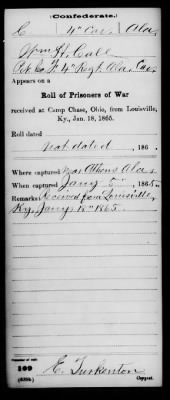 (Confederate.)
C 4" Cav. Ala.
Wm H. Call
Pvt Co. F 4" Regt. Ala. Cav.
Appears on a
Roll of Prisoners of War
received at Camp Chase, Ohio, from Louisville,
Ky., Jan. 18, 1865.
Roll dated
not dated, 186 .
Where captured Near Athens Ala.
When captured Jany 5, 1865.
Remarks Received from Louisville
Ky. Jany 18" 1865.
109
(639b)
E. Turkenton
Copyist.